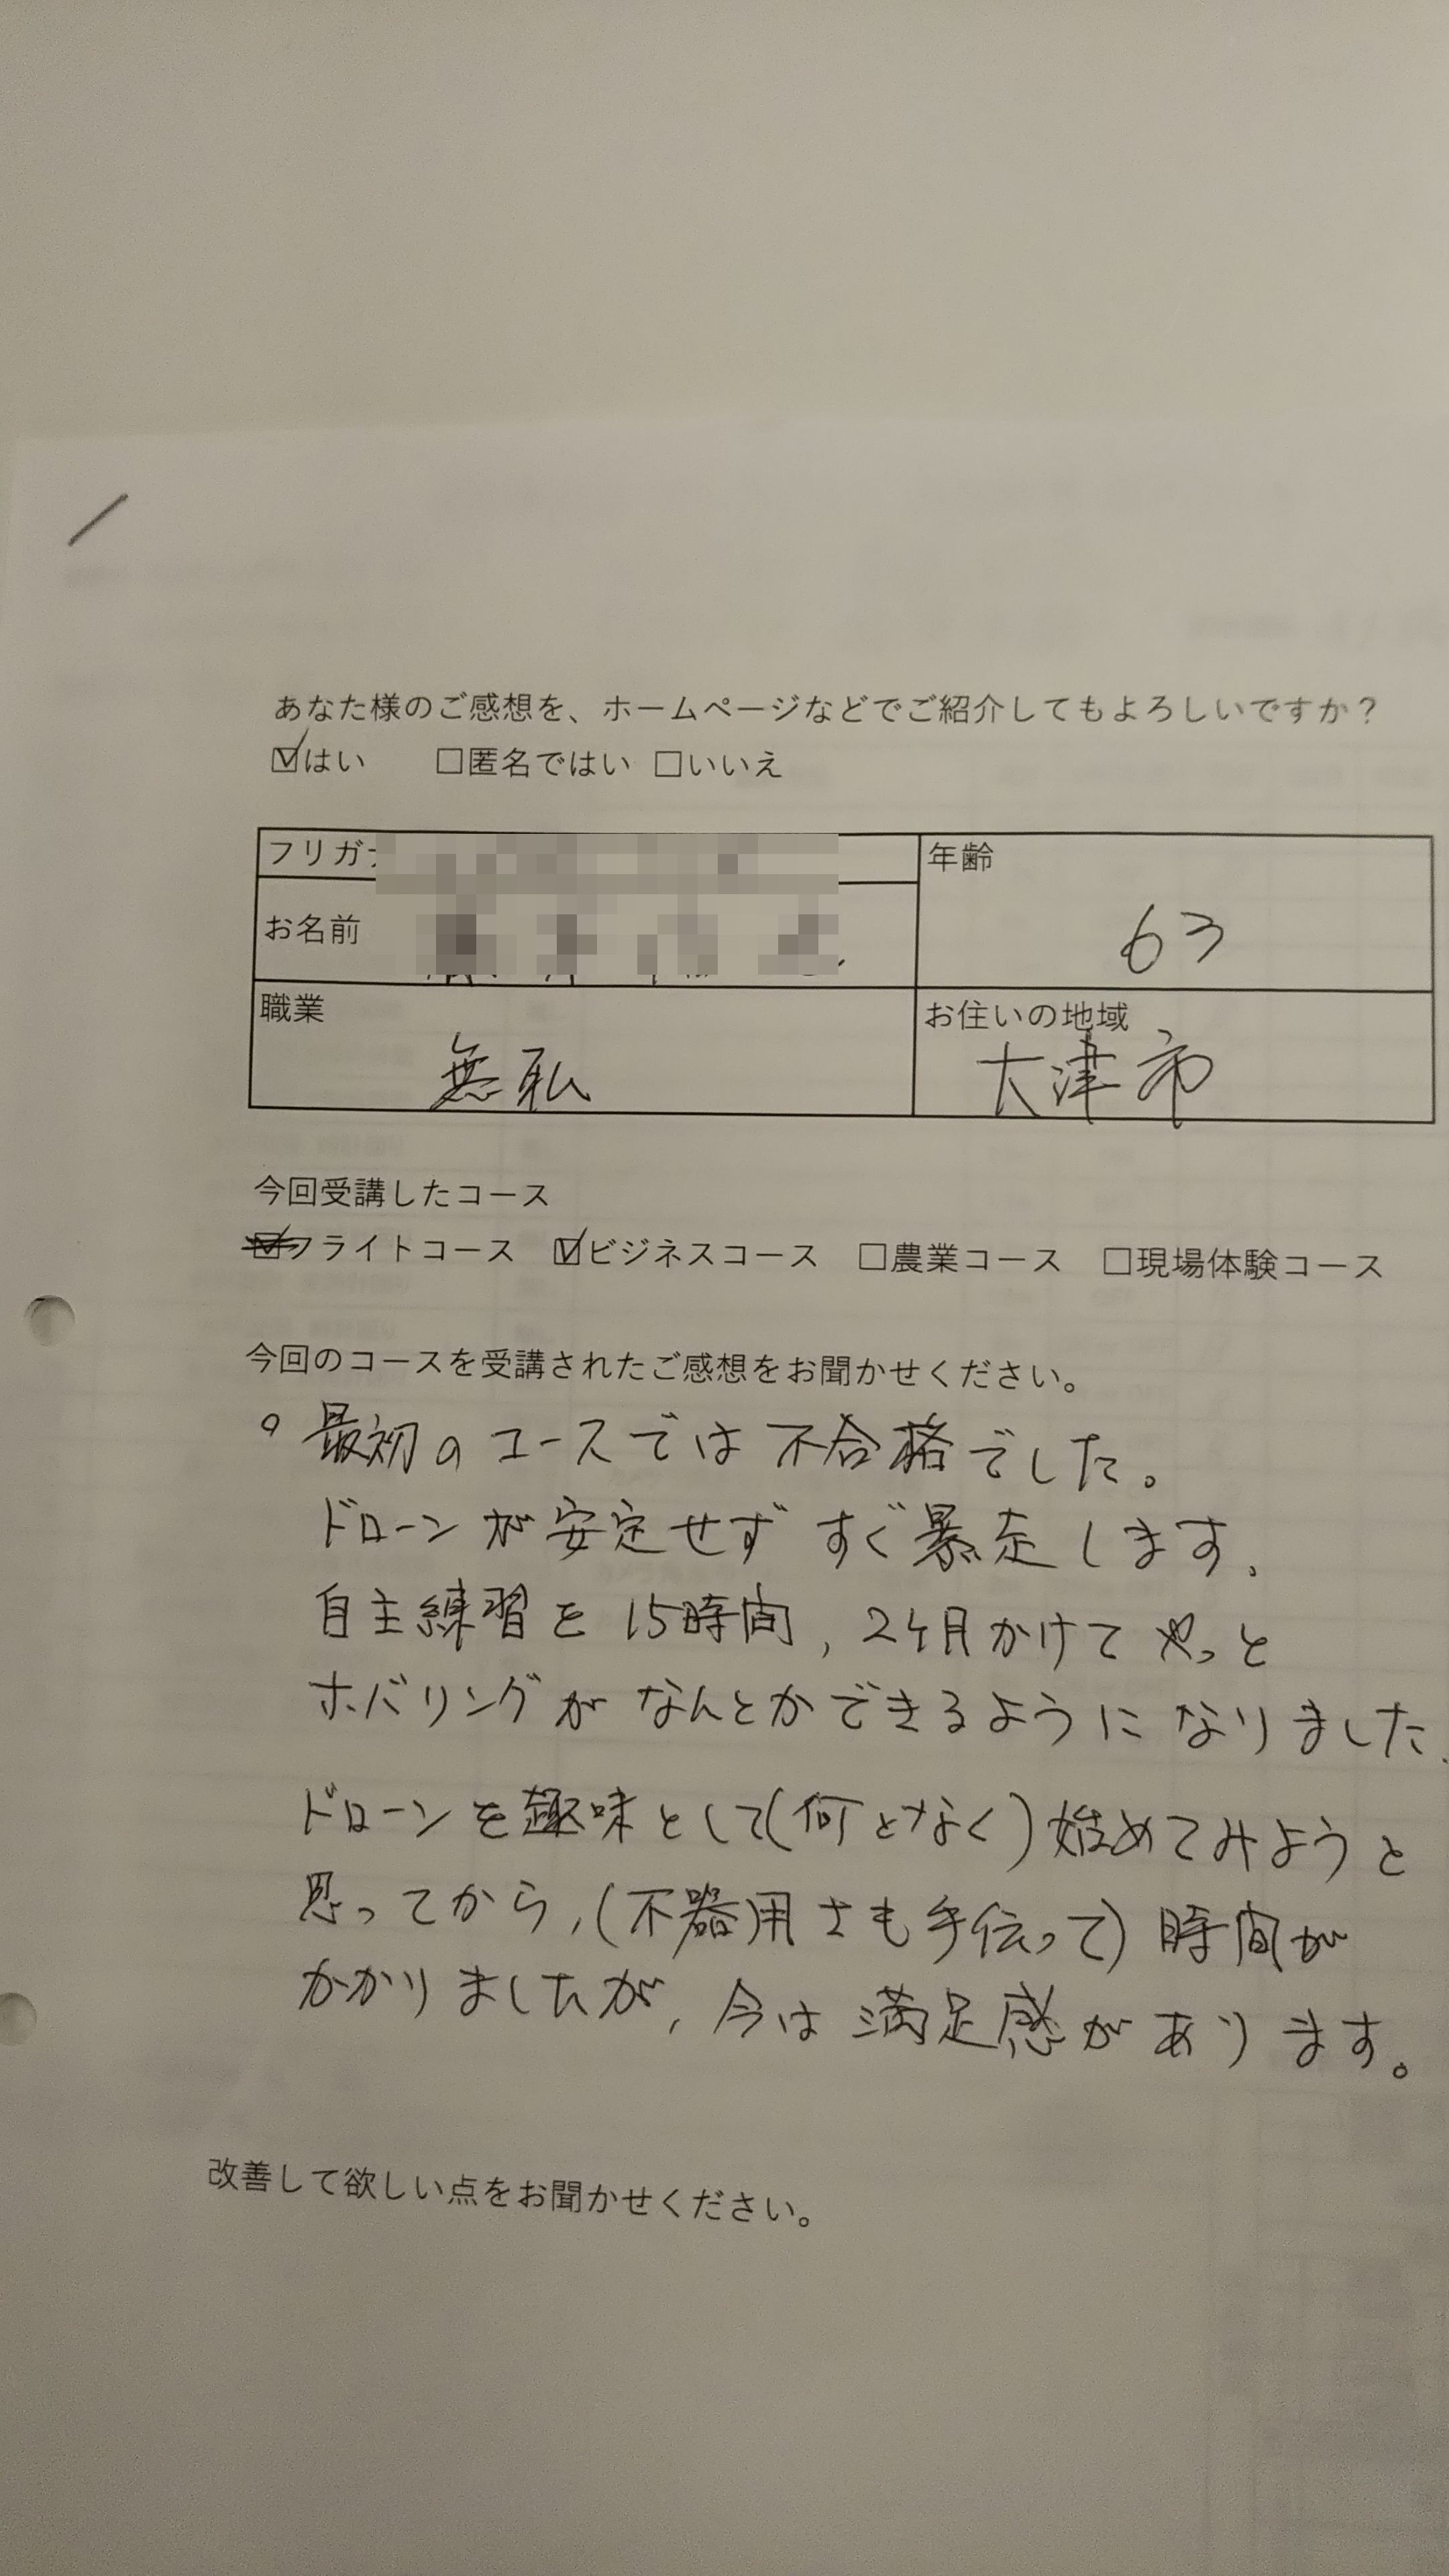 あなた様のご感想を、ホームページなどでご紹介してもよろしいですか？
☑はい　□匿名ではい　□いいえ
フリガナ
年齢
お名前
63
職業
お住いの地域
無職
大津市
今回受講したコース
☑フライトコース　☑ビジネスコース　□農業コース　□現場体験コース
今回のコースを受講されたご感想をお聞かせください。
○ 最初のコースでは不合格でした。
ドローンが安定せずすぐ暴走します、
自主練習を15時間, 2ヶ月かけてやっと
ホバリングがなんとかできるようになりました、
ドローンを趣味として(何となく)始めてみようと
思ってから, (不器用さも手伝って) 時間が
かかりましたが, 今は満足感があります。
改善して欲しい点をお聞かせください。